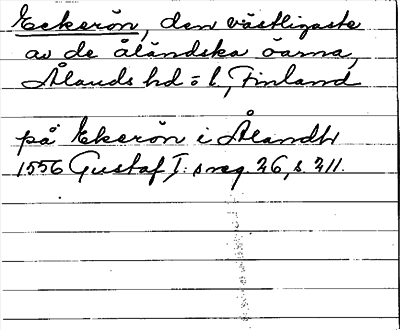 Eckerön, den västligaste
av de åländska öarna,
Ålands hd o l, Finland
på Ekerön i Ålandh
1556 Gustaf I:s reg. 26, s. 211.